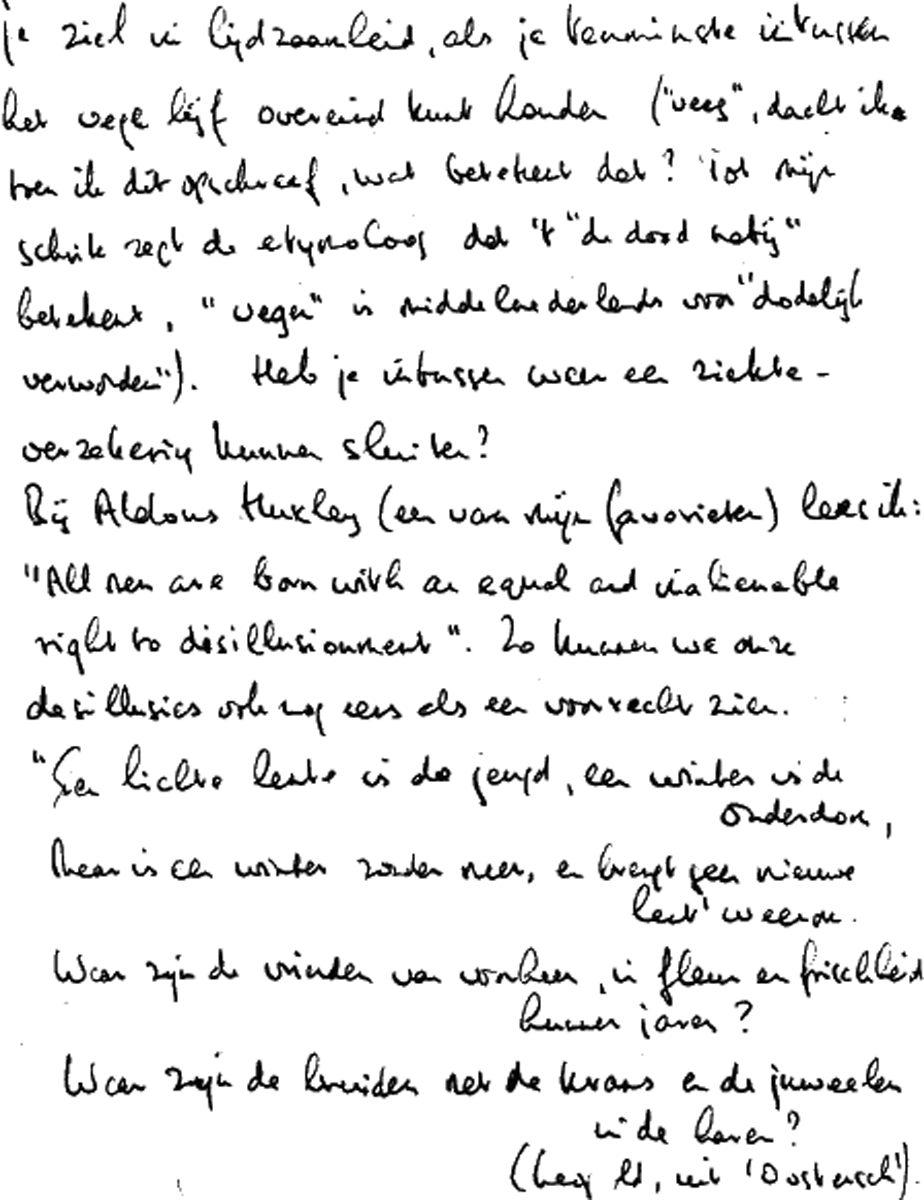 je ziel in lijdzaamheid, als je tenminste intussen
het vege lijf overeind kunt houden ("veeg", dacht ik
toen ik dit opschreef, wat betekent dat? Tot mijn
schrik zegt de etymoloog dat 't "de dood nabij"
betekent, "vegen" is middelnederlands voor "dodelijk
verwonden"). Heb je intussen weer een ziekte-
verzekering kunnen sluiten?
Bij Aldous Huxley (een van mijn favorieten) lees ik:
"All men are born with an equal and inalienable
right to disillusionment". Zo kunnen we onze
desillusies ook nog eens als een voorrecht zien.
"Een lichte lente is de jeugd, een winter is de
ouderdom,
Maar is een winter zonder meer, en brengt geen nieuwe
lent' weerom.
Waar zijn de vrienden van voorheen, in fleur en frischheid
hunner jaren?
Waar zijn de bruiden met de krans en de juweelen
in de haren?
(Leopold, uit 'Oostersch').